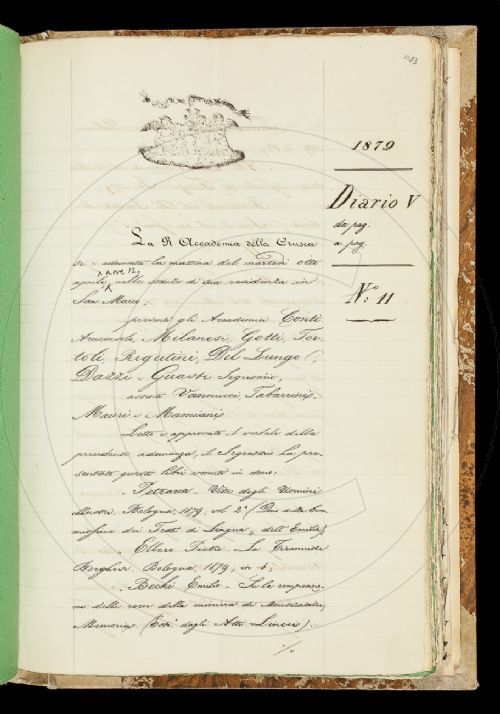 1183
1879
Diario V
da pag.
a pag.
N.° 11
La R. Accademia della Crusca
si è adunata la mattina del martedì otto
aprile, a ore 12, nelle stanze di sua residenza in
San Marco;
presenti gli Accademici Conti
Arciconsolo, Milanesi, Gotti, Tor-
toli, Rigutini, Del Lungo,
Dazzi e Guasti Segretario;
assenti Vannucci, Tabarrini,
Mauri e Mamiani
Letto e approvato il verbale della
precedente adunanza, il Segretario ha pre-
sentato questi libri venuti in dono:
Petrarca – Vite degli Uomini
illustri. Bologna, 1879, vol. 2° (Dono della Com-
missione dei Testi di Lingua, dell'Emilia)
Ellero Pietro – La Tirannide
Borghese. Bologna, 1879, in 8;
Bechi Emilio –
della
Memoria (Estr. dagli Atti Lincei).
./.